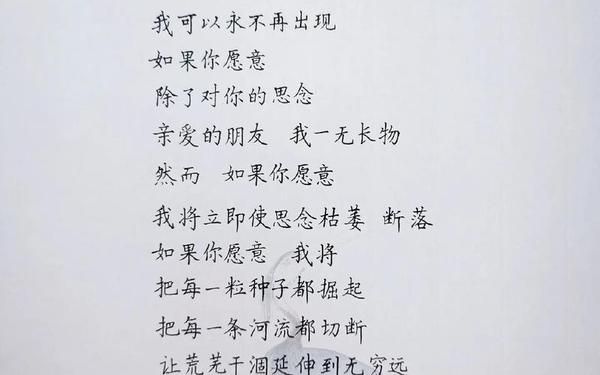 我可以永不再出现
如果你愿意
除了对你的思念
亲爱的朋友 我一无长物
然而 如果你愿意
我将立即使思念枯萎 断落
如果你愿意 我将
把每一粒种子都掘起
把每一条河流都切断
让荒芜干涸延伸到无穷远